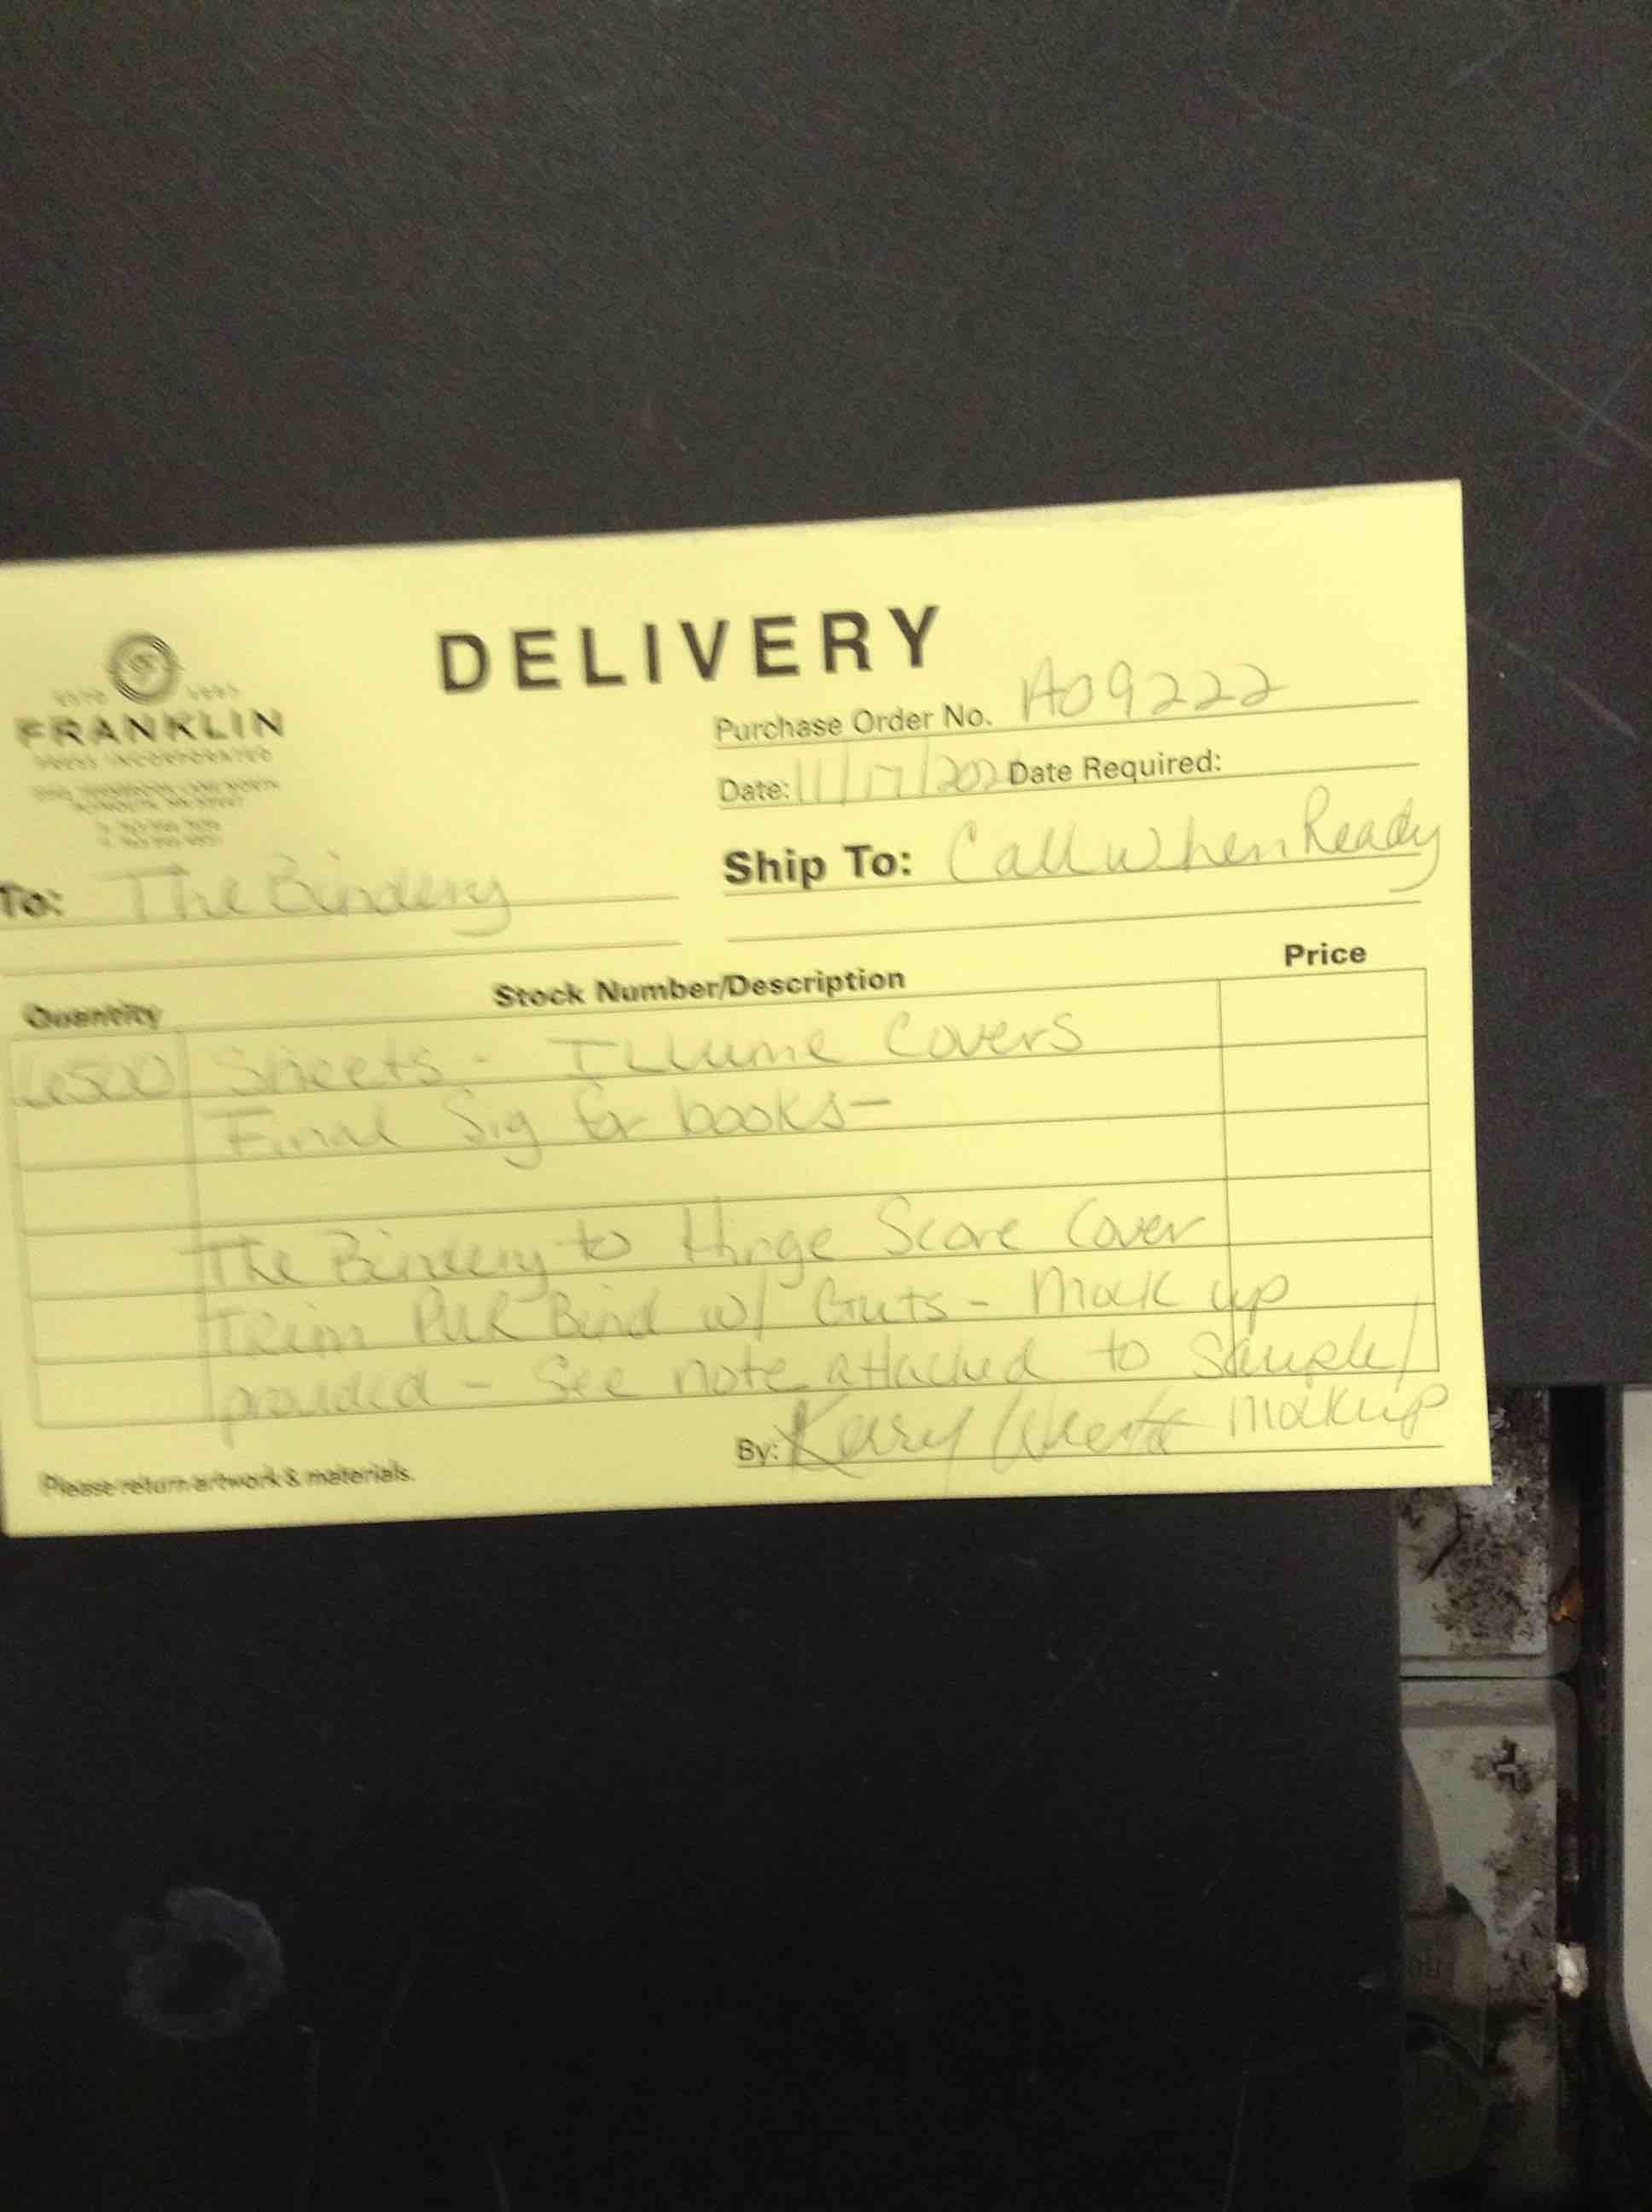 DELIVERY
FRANKLIN
PRESS INCORPORATED
Purchase Order No. A09222
Date: 11/17/202 Date Required:
To: The Bindery
Ship To: Call when Ready
Quantity Stock Number/Description Price
6500 Sheets - Illume Covers
Final Sig for books-
The Bindery to Hinge Score Cover
Trim PUR Bind w/ Guts - Mock up
provided - See note attached to Sample/
mockup
By: Kerry
Please return artwork & materials.